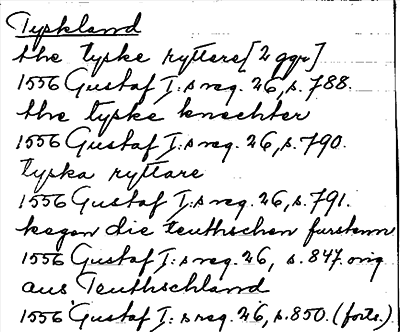 Tyskland
the tyske ryttare [2 ggr]
1556 Gustaf I:s reg. 26, s. 788.
the tyske knechter
1556 Gustaf I:s reg. 26, s. 790.
tyska ryttare
1556 Gustaf I:s reg. 26, s. 791.
kegen die teuthschen fursten
1556 Gustaf I:s reg. 26, s. 847. orig
aus Teuthschland
1556 Gustaf I:s reg. 26, s. 850. (forts.)